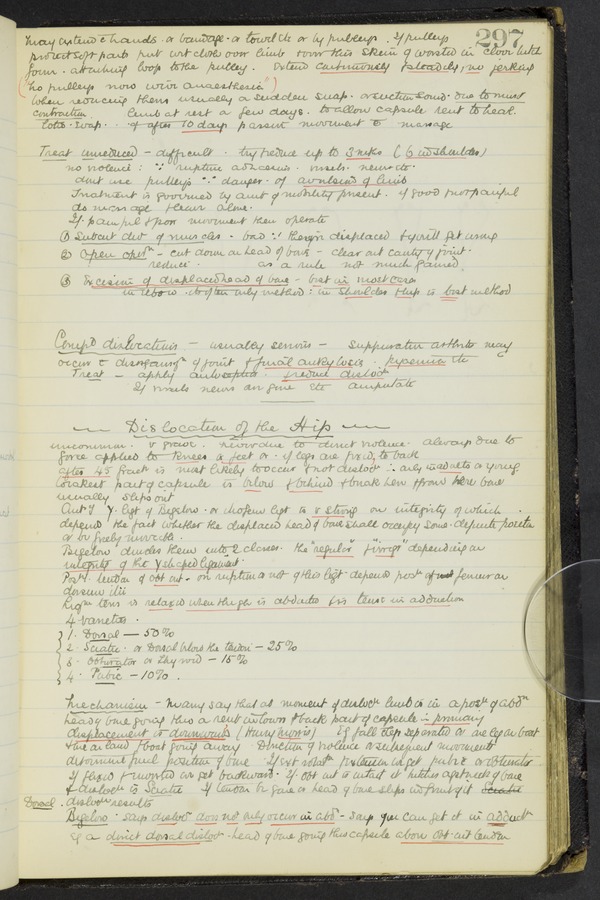 297
may extend c hands or bandage or towel etc or by pulleys. If pulleys
protect soft parts put wet cloth over limb over this skein of worsted in clove hitch
form. attaching loop to the pulley. Extend continuously & steadily, no jerking
(no pulleys now with anaesthesia)
when reducing there usually a sudden snap. or suction sound due to must
contraction limb at rest a few days. to allow capsule rent to heal.
after 10 days passive movement & massage
Treat unreduced - difficult. try reduce up to 3 mths (6 in shoulder)
no violence: ∵ rupture adhesions. vessels. nerves etc
dont use pulleys ∵ danger of avulsion of limb
Treatment is governed by amt of mobility present. if good & not painful
do massage & leave alone.
If painful & poor movement then operate
① Subcut div of muscles - bad ∵ displaced & will get using
② Open opern - cut down on head of bone - clear out cavity of joint.
reduce. as a rule not much gained
③ Excision of displaced head of bone - best in most cases
in elbow it often only method: in shoulder & hip is best method
Compd dislocations - usually serious - suppuration arthritis may
occur c disorganisn of joint & final ankylosis. pyaemia etc
Treat - apply antiseptics. reduce dislocn
If vessels nerves are gone etc amputate
Dislocation of the Hip
uncommon. v grave. never due to direct violence. always due to
force applied to knees or feet or if legs are fixed, to back
after 45 fract is most likely to occur & not dislocn ∴ only in adults or young
weakest part of capsule is below & behind & break here & from here bone
usually slips out
Antr Y ligt of Bigelow or iliofem ligt is v strong on integrity of which
depends the fact whether the displaced head of bone shall occupy some definite positn
or be freely movable.
Bigelow divides them into 2 classes. the "regular" & "irreg" depending on
integrity of the Y shaped ligament
Postr tendon of obt int - on rupture or not of this ligt depends posn of femur on
dorsum ilii
Ligm teres is relaxed when thigh is abducted & is tense in adduction
4 varieties.
1. Dorsal — 50%
2. Sciatic or Dorsal below the tendon - 25%
3. Obturator or thyroid - 15%
4. Pubic - 10%.
Mechanism - many say that at moment of dislocn limb is in a posn of abdn
head of bone going thro a rent in lower & back part of capsule ∴ primary
displacement is downwards (Henry Morris) if fall legs separated or one leg on boat
& one on land & boat going away Direction of violence or subsequent movement
determine final position of bone If ext rotatn get pubic or obturator
if flexed & inverted we get backward. If obt int is intact it hitches agst neck of bone
& dislocn is sciatic If tendon be gone or head of bone slips in front of it
Dorsal dislocn results
Bigelow says dislocn does not only occur in abdn - says you can get it in adductn
eg a direct dorsal dislocn - head of bone going thro capsule above obt int tendon